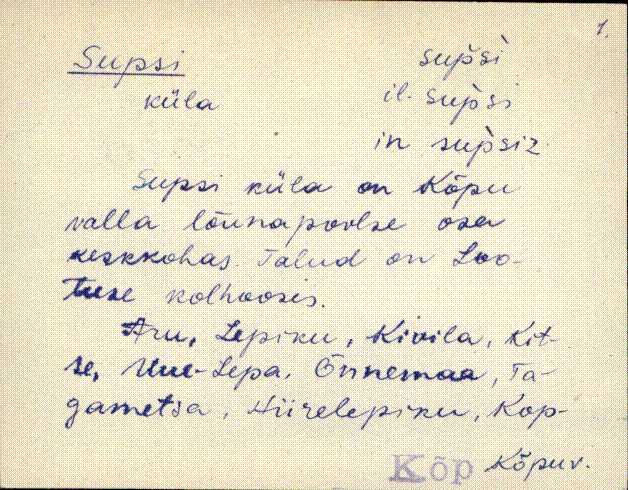 1.
Supsi sup̀si
küla il. sup̀si
in sup̀siz
Supsi küla on Kõpu
valla lõunapoolse osa
keskkohas. Talud on Loo-
tuse kolhoosis.
Aru, Lepiku, Kivila, Kit-
se, Uue-Lepa, Õnnemaa, Ta-
gametsa, Hiirelepiku, Kop-
Kõp Kõpuv.